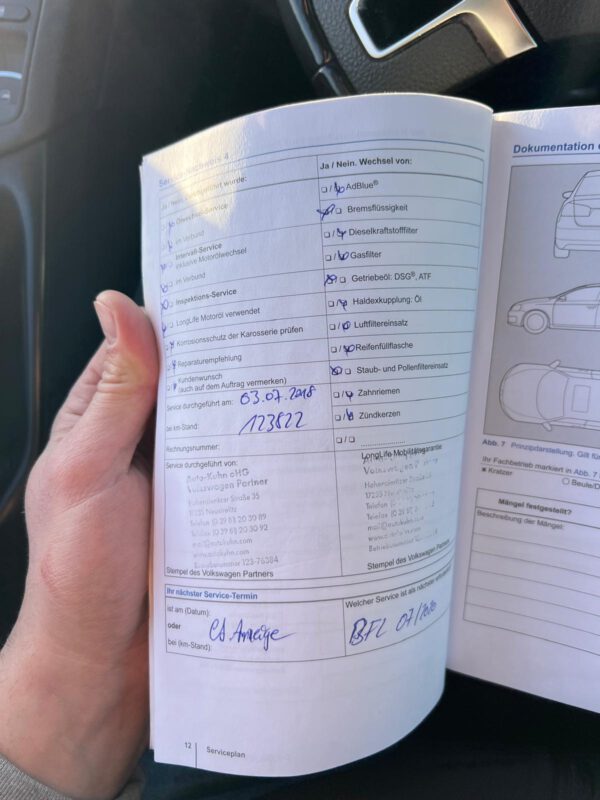 Service-Nachweis 4
Ja / Nein. Durchgeführt wurde:
Ölwechsel-Service
im Verbund
Intervall-Service
inklusive Motorölwechsel
im Verbund
Inspektions-Service
LongLife Motoröl verwendet
Korrosionsschutz der Karosserie prüfen
Reparaturempfehlung
Kundenwunsch
(auch auf dem Auftrag vermerken)
Service durchgeführt am: 03.07.2018
bei km-Stand: 123822
Rechnungsnummer:
Service durchgeführt von:
Auto-Kuhn oHG
Volkswagen Partner
Stempel des Volkswagen Partners
Ja / Nein. Wechsel von:
AdBlue®
Bremsflüssigkeit
Dieselkraftstofffilter
Gasfilter
Getriebeöl: DSG®, ATF
Haldexkupplung: Öl
Luftfiltereinsatz
Reifenfüllflasche
Staub- und Pollenfiltereinsatz
Zahnriemen
Zündkerzen
LongLife Mobilitätsgarantie
Stempel des Volkswagen Partners
Ihr nächster Service-Termin
ist am (Datum):
oder
bei (km-Stand):
Lt. Anzeige
Welcher Service ist als nächster
BFL 07/2020
12 Serviceplan
Dokumentation
Abb. 7 Prinzipdarstellung. Gilt
Ihr Fachbetrieb markiert in Abb. 7
Kratzer
Mängel festgestellt?
Beschreibung der Mängel: